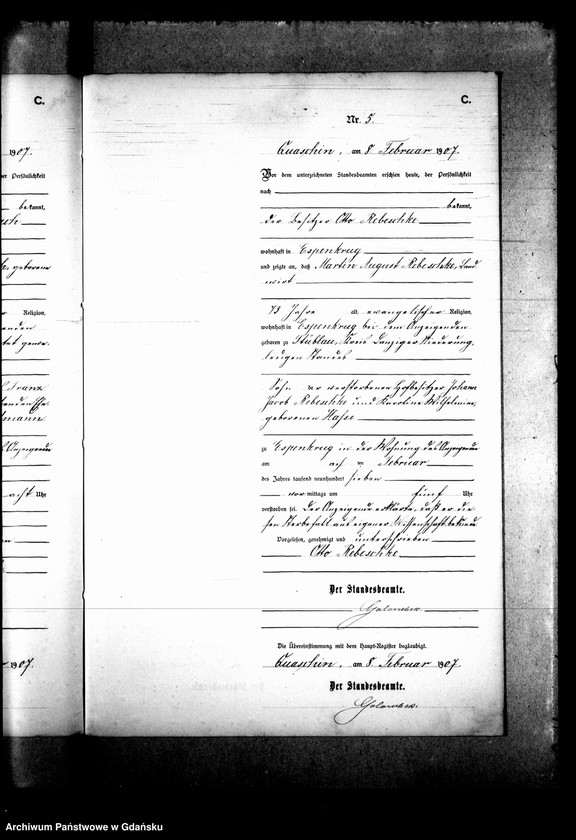 C.
1907.
der Persönlichkeit
bekannt,
geborene
Religion,
Franz
acht Uhr
1907.
C.
Nr. 5.
Quaschin, am 8 Februar 1907.
Vor dem unterzeichneten Standesbeamten erschien heute, der Persönlichkeit
nach
bekannt,
der Besitzer Otto Rebeschke
wohnhaft in Espenkrug
und zeigte an, daß Martin August Rebeschke, Land
wirt
73 Jahre alt, evangelischer Religion,
wohnhaft in Espenkrug bei dem Anzeigenden
geboren zu Stüblau, Kreis Danziger Niederung,
ledigen Standes
Sohn der verstorbenen Hofbesitzer Johann
Jacob Rebeschke und Karoline Wilhelmine,
geborenen Hasse
zu Espenkrug in der Wohnung des Anzeigenden
am acht en Februar
des Jahres tausend neunhundert sieben
vor mittags um fünf Uhr
verstorben sei. Der Anzeigende erklärte, daß er die
sen Sterbefall aus eigener Wissenschaft bekunde
Vorgelesen, genehmigt und unterschrieben
Otto Rebeschke
Der Standesbeamte.
Golombek
Die Übereinstimmung mit dem Haupt-Register beglaubigt.
Quaschin, am 8. Februar 1907.
Der Standesbeamte.
Golombek.
Archiwum Państwowe w Gdańsku